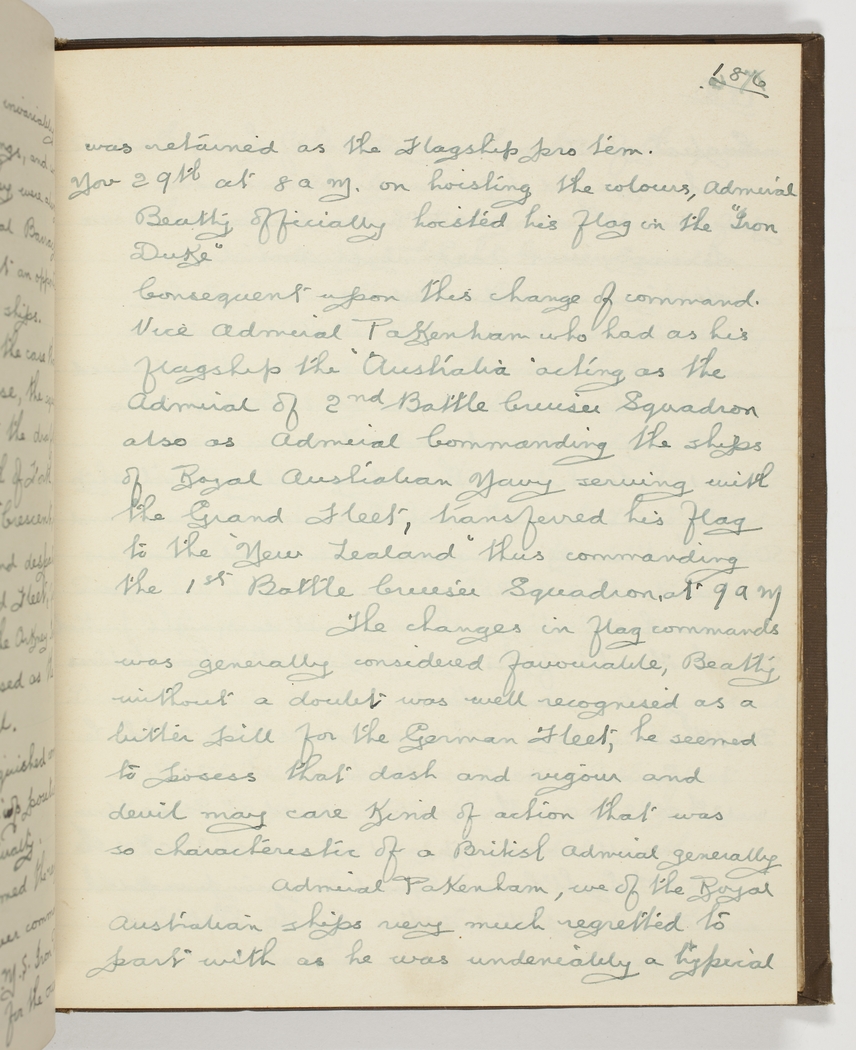 186
was retained as the Flagship pro tem.
Nov 29th at 8 a M. on hoisting the colours, Admiral
Beatty officially hoisted his flag in the "Iron
Duke"
Consequent upon this change of command.
Vice Admiral Pakenham who had as his
flagship the "Australia" acting as the
Admiral of 2nd Battle Cruiser Squadron
also as Admiral Commanding the ships
of Royal Australian Navy serving with
the Grand Fleet, transferred his flag
to the "New Zealand" thus commanding
the 1st Battle Cruiser Squadron, at 9 a M
The changes in flag commands
was generally considered favourable, Beatty
without a doubt was well recognised as a
bitter pill for the German Fleet, he seemed
to posess that dash and vigour and
devil may care kind of action that was
so characteristic of a British Admiral generally
Admiral Pakenham, we of the Royal
Australian ships very much regretted to
part with as he was undeniably a typical